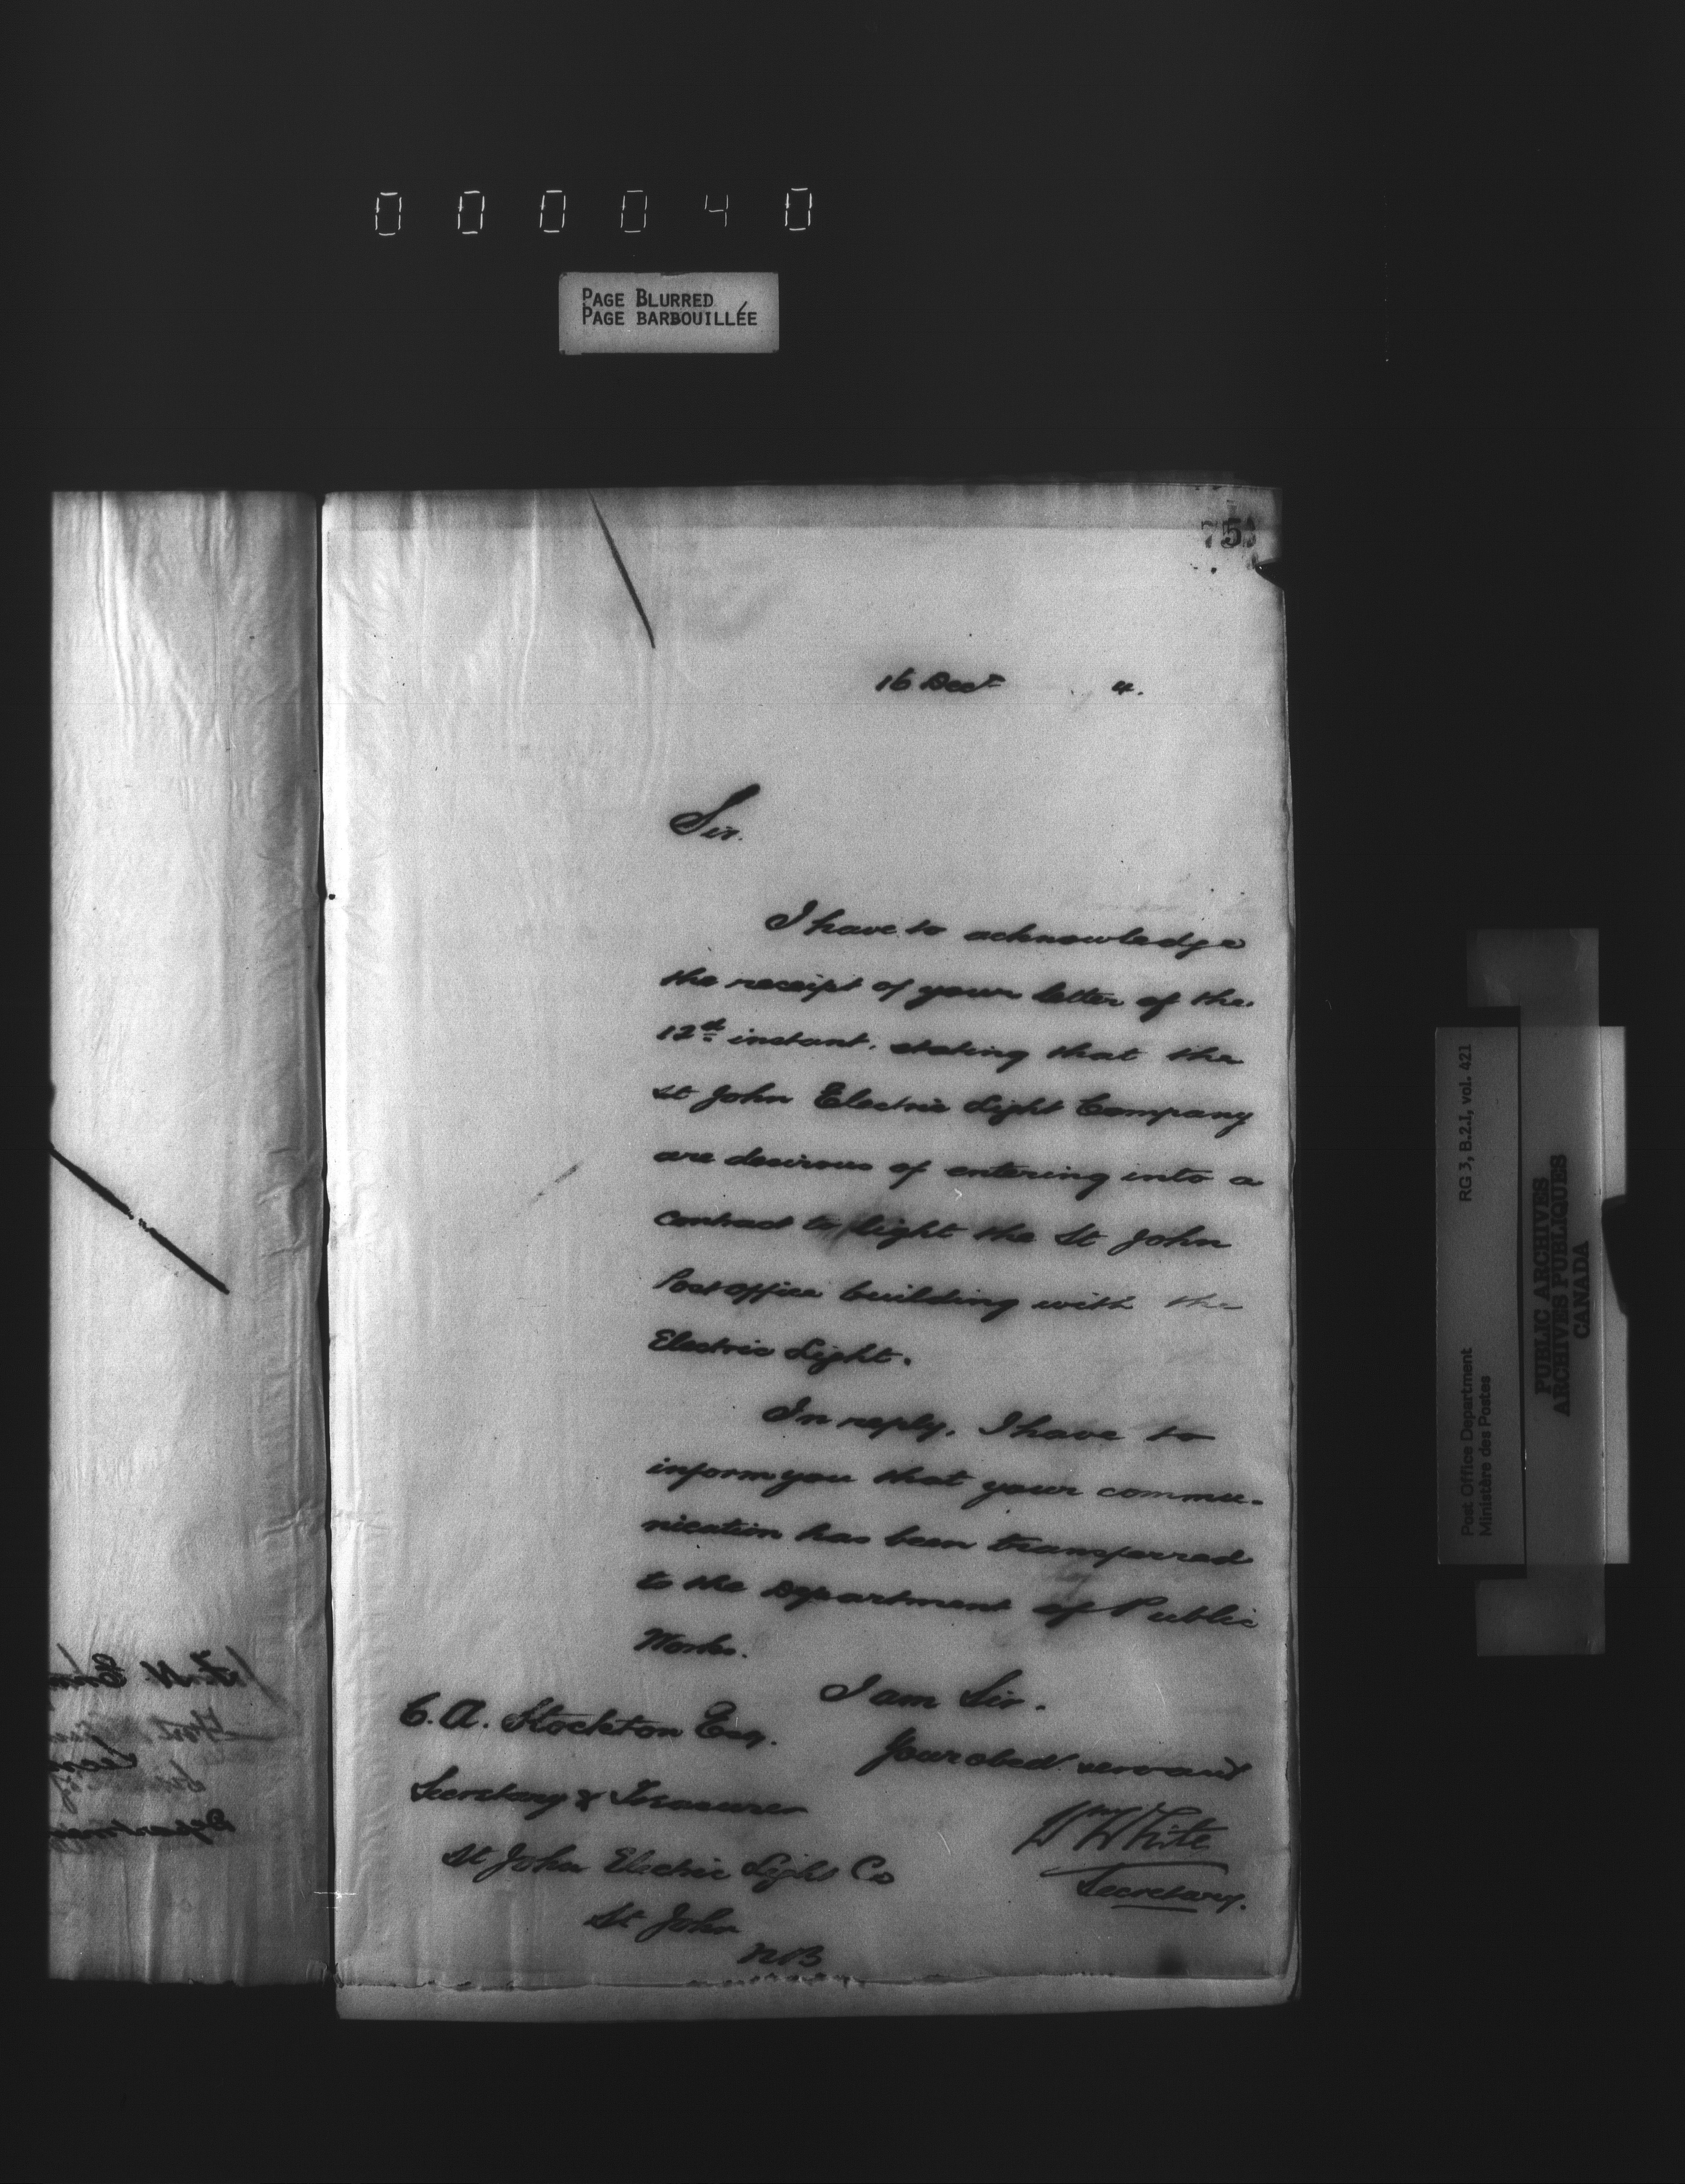 000040
PAGE BLURRED
PAGE BARBOUILLÉE
75
16 Decr 4.
Sir.
I have to acknowledge
the receipt of your letter of the
12th instant. stating that the
St John Electric Light Company
are desirous of entering into a
contract to light the St John
Post Office building with the
Electric Light.
In reply, I have to
inform you that your commu-
nication has been transferred
to the Department of Public
Works.
I am Sir.
Your obedt servant
Wm White
Secretary.
C. A. Stockton Esq.
Secretary & Treasurer
St John Electric Light Co
St John
NB
Post Office Department RG 3, B.2.1, vol. 421
Ministère des Postes
PUBLIC ARCHIVES
ARCHIVES PUBLIQUES
CANADA